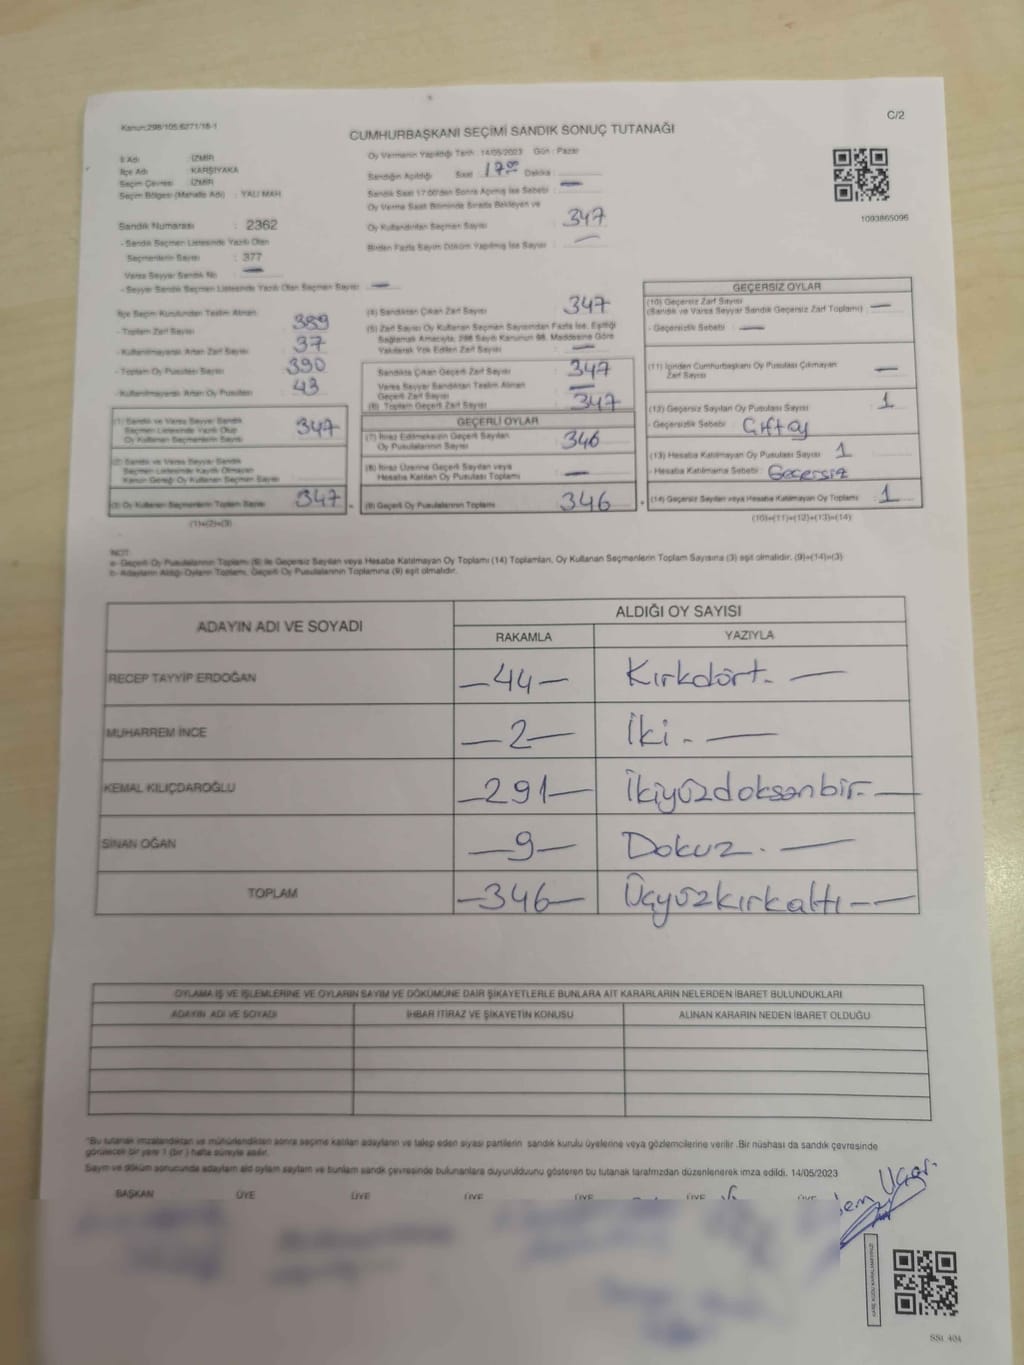 Kanun:298/105,6271/18-1
C/2
CUMHURBAŞKANI SEÇİMİ SANDIK SONUÇ TUTANAĞI
İl Adı : İZMİR
İlçe Adı : KARŞIYAKA
Seçim Çevresi : İZMİR
Seçim Bölgesi (Mahalle Adı) : YALI MAH.
Oy Vermenin Yapıldığı Tarih :14/05/2023 Gün : Pazar
Sandığın Açıldığı Saat : 17.00 Dakika :
Sandık Saat 17:00'den Sonra Açılmış İse Sebebi : —
Oy Verme Saati Bitiminde Sırada Bekleyen ve
Oy Kullandırılan Seçmen Sayısı : 347
Birden Fazla Sayım Döküm Yapılmış İse Sayısı : —
1093865096
Sandık Numarası : 2362
- Sandık Seçmen Listesinde Yazılı Olan
Seçmenlerin Sayısı : 377
Varsa Seyyar Sandık No : —
- Seyyar Sandık Seçmen Listesinde Yazılı Olan Seçmen Sayısı : —
İlçe Seçim Kurulundan Teslim Alınan
- Toplam Zarf Sayısı : 389
- Kullanılmayarak Artan Zarf Sayısı : 37
- Toplam Oy Pusulası Sayısı : 390
- Kullanılmayarak Artan Oy Pusulası : 43
(1) Sandık ve Varsa Seyyar Sandık
Seçmen Listesinde Yazılı Olup
Oy Kullanan Seçmenlerin Sayısı : 347
(2) Sandık ve Varsa Seyyar Sandık
Seçmen Listesinde Kayıtlı Olmayan
Kanun Gereği Oy Kullanan Seçmen Sayısı :
(3) Oy Kullanan Seçmenlerin Toplam Sayısı : 347
(1)+(2)=(3)
(4) Sandıktan Çıkan Zarf Sayısı : 347
(5) Zarf Sayısı Oy Kullanan Seçmen Sayısından Fazla İse, Eşitliği
Sağlamak Amacıyla; 298 Sayılı Kanunun 98. Maddesine Göre
Yakılarak Yok Edilen Zarf Sayısı : —
Sandıkta Çıkan Geçerli Zarf Sayısı : 347
Varsa Seyyar Sandıktan Teslim Alınan
Geçerli Zarf Sayısı : —
(6) Toplam Geçerli Zarf Sayısı : 347
GEÇERLİ OYLAR
(7) İtiraz Edilmeksizin Geçerli Sayılan
Oy Pusulasının Sayısı : 346
(8) İtiraz Üzerine Geçerli Sayılan veya
Hesaba Katılan Oy Pusulası Toplamı : —
(9) Geçerli Oy Pusulalarının Toplamı : 346
GEÇERSİZ OYLAR
(10) Geçersiz Zarf Sayısı
(Sandık ve Varsa Seyyar Sandık Geçersiz Zarf Toplamı) : —
- Geçersizlik Sebebi : —
(11) İçinden Cumhurbaşkanı Oy Pusulası Çıkmayan
Zarf Sayısı : —
(12) Geçersiz Sayılan Oy Pusulası Sayısı : 1
- Geçersizlik Sebebi : Çift oy
(13) Hesaba Katılmayan Oy Pusulası Sayısı : 1
- Hesaba Katılmama Sebebi : Geçersiz
(14) Geçersiz Sayılan veya Hesaba Katılmayan Oy Toplamı : 1
(10)+(11)+(12)+(13)=(14)
NOT:
a- Geçerli Oy Pusulalarının Toplamı (9) ile Geçersiz Sayılan veya Hesaba Katılmayan Oy Toplamı (14) Toplamları, Oy Kullanan Seçmenlerin Toplam Sayısına (3) eşit olmalıdır. (9)+(14)=(3)
b- Adayların Aldığı Oyların Toplamı, Geçerli Oy Pusulalarının Toplamına (9) eşit olmalıdır.
ADAYIN ADI VE SOYADI
ALDIĞI OY SAYISI
RAKAMLA YAZIYLA
RECEP TAYYİP ERDOĞAN —44— Kırkdört. —
MUHARREM İNCE —2— İki. —
KEMAL KILIÇDAROĞLU —291— İkiyüzdoksanbir. —
SİNAN OĞAN —9— Dokuz. —
TOPLAM —346— Üçyüzkırkaltı — —
OYLAMA İŞ VE İŞLEMLERİNE VE OYLARIN SAYIM VE DÖKÜMÜNE DAİR ŞİKAYETLERLE BUNLARA AİT KARARLARIN NELERDEN İBARET BULUNDUKLARI
ADAYIN ADI VE SOYADI İHBAR İTİRAZ VE ŞİKAYETİN KONUSU ALINAN KARARIN NEDEN İBARET OLDUĞU
*Bu tutanak imzalandıktan ve mühürlendikten sonra seçime katılan adayların ve talep eden siyasi partilerin sandık kurulu üyelerine veya gözlemcilerine verilir .Bir nüshası da sandık çevresinde
görülecek bir yere 1 (bir ) hafta süreyle asılır.
Sayım ve döküm sonucunda adayların aldı oyların saylam ve bunların sandık çevresinde bulunanlara duyurulduunu gösteren bu tutanak tarafmzdan düzenlenerek imza edildi. 14/05/2023
BAŞKAN ÜYE ÜYE ÜYE ÜYE ÜYE ÜYE
Uçar.
KARE KODU KARALAMAYINIZ!
SSt: 404